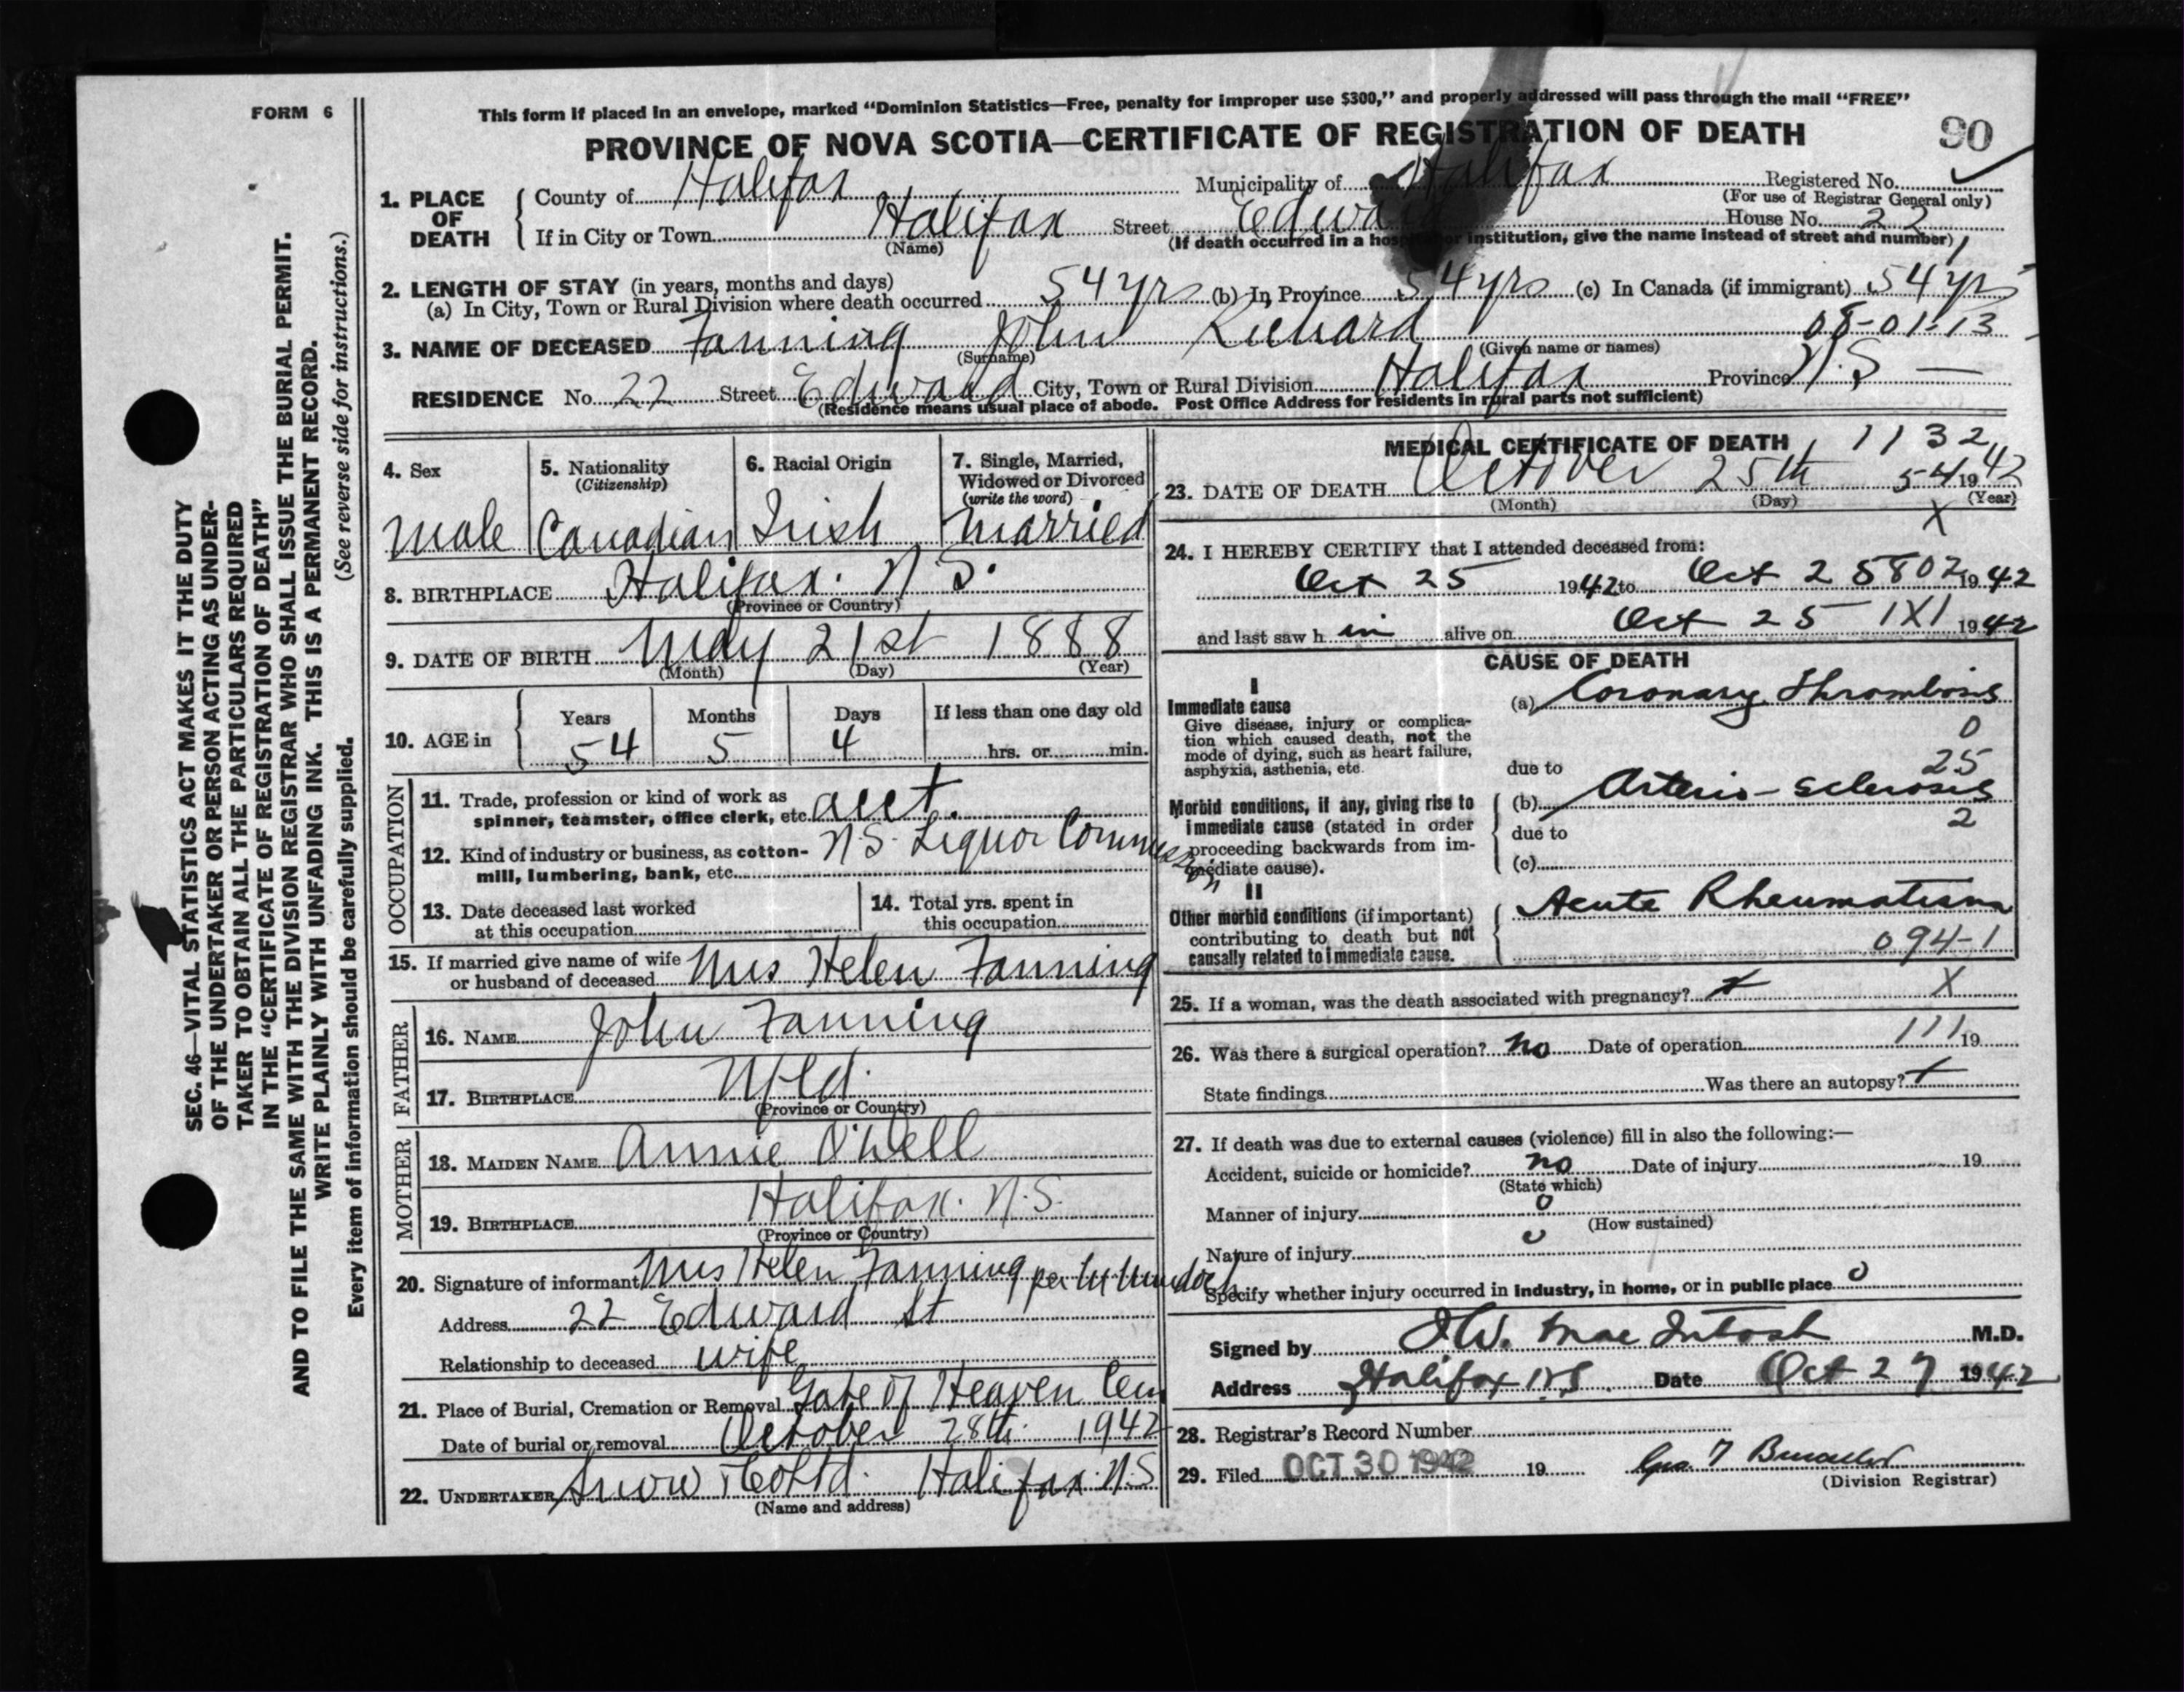 FORM 6
This form if placed in an envelope, marked “Dominion Statistics—Free, penalty for improper use $300,” and properly addressed will pass through the mail “FREE”
PROVINCE OF NOVA SCOTIA—CERTIFICATE OF REGISTRATION OF DEATH
90
1. PLACE OF DEATH
County of Halifax Municipality of Halifax Registered No.
(For use of Registrar General only)
If in City or Town Halifax Street Edwa House No. 22
(Name) (If death occurred in a hospital or institution, give the name instead of street and number)
2. LENGTH OF STAY (in years, months and days)
(a) In City, Town or Rural Division where death occurred 54 yrs (b) In Province 54 yrs (c) In Canada (if immigrant) 54 yrs
08-01-13
3. NAME OF DECEASED Fanning John Richard
(Surname) (Given name or names)
RESIDENCE No. 22 Street Edward City, Town or Rural Division Halifax Province N.S —
(Residence means usual place of abode. Post Office Address for residents in rural parts not sufficient)
4. Sex
male
5. Nationality
(Citizenship)
Canadian
6. Racial Origin
Irish
7. Single, Married,
Widowed or Divorced
(write the word)
Married
8. BIRTHPLACE Halifax. N.S.
(Province or Country)
9. DATE OF BIRTH May 21st 1888
(Month) (Day) (Year)
10. AGE in
Years Months Days If less than one day old
54 5 4 hrs. or min.
OCCUPATION
11. Trade, profession or kind of work as
spinner, teamster, office clerk, etc. acct.
12. Kind of industry or business, as cotton-
mill, lumbering, bank, etc. N.S. Liquor Commission
13. Date deceased last worked
at this occupation
14. Total yrs. spent in
this occupation
15. If married give name of wife
or husband of deceased Mrs Helen Fanning
FATHER
16. NAME John Fanning
17. BIRTHPLACE Nfld.
(Province or Country)
MOTHER
18. MAIDEN NAME Annie
19. BIRTHPLACE Halifax. N.S.
(Province or Country)
20. Signature of informant Mrs Helen Fanning per
Address 22 Edward St
Relationship to deceased wife
21. Place of Burial, Cremation or Removal Gate of Heaven Cem
Date of burial or removal October 28th. 1942
22. UNDERTAKER Snow & Co Ltd. Halifax. N.S
(Name and address)
MEDICAL CERTIFICATE OF DEATH 1132
23. DATE OF DEATH October 25th 54 1942
(Month) (Day) (Year)
X
24. I HEREBY CERTIFY that I attended deceased from:
Oct 25 1942 to Oct 25 802 1942
and last saw h im alive on Oct 25 1X1 1942
CAUSE OF DEATH
I
Immediate cause
Give disease, injury or complica-
tion which caused death, not the
mode of dying, such as heart failure,
asphyxia, asthenia, etc.
(a) Coronary Thrombosis
0
25
due to
Morbid conditions, if any, giving rise to
immediate cause (stated in order
proceeding backwards from im-
mediate cause).
(b) Arterio-sclerosis
2
due to
(c)
II
Other morbid conditions (if important)
contributing to death but not
causally related to immediate cause.
Acute Rheumatism
094-1
25. If a woman, was the death associated with pregnancy? X
26. Was there a surgical operation? no Date of operation 111 19
State findings Was there an autopsy?
27. If death was due to external causes (violence) fill in also the following:—
Accident, suicide or homicide? no Date of injury 19
(State which)
Manner of injury 0
(How sustained)
Nature of injury 0
Specify whether injury occurred in industry, in home, or in public place 0
Signed by J.W. MacIntosh M.D.
Address Halifax N.S. Date Oct 27 1942
28. Registrar's Record Number
29. Filed OCT 30 1942 19
(Division Registrar)
SEC. 46—VITAL STATISTICS ACT MAKES IT THE DUTY
OF THE UNDERTAKER OR PERSON ACTING AS UNDER-
TAKER TO OBTAIN ALL THE PARTICULARS REQUIRED
IN THE “CERTIFICATE OF REGISTRATION OF DEATH”
AND TO FILE THE SAME WITH THE DIVISION REGISTRAR WHO SHALL ISSUE THE BURIAL PERMIT.
WRITE PLAINLY WITH UNFADING INK. THIS IS A PERMANENT RECORD.
Every item of information should be carefully supplied. (See reverse side for instructions.)